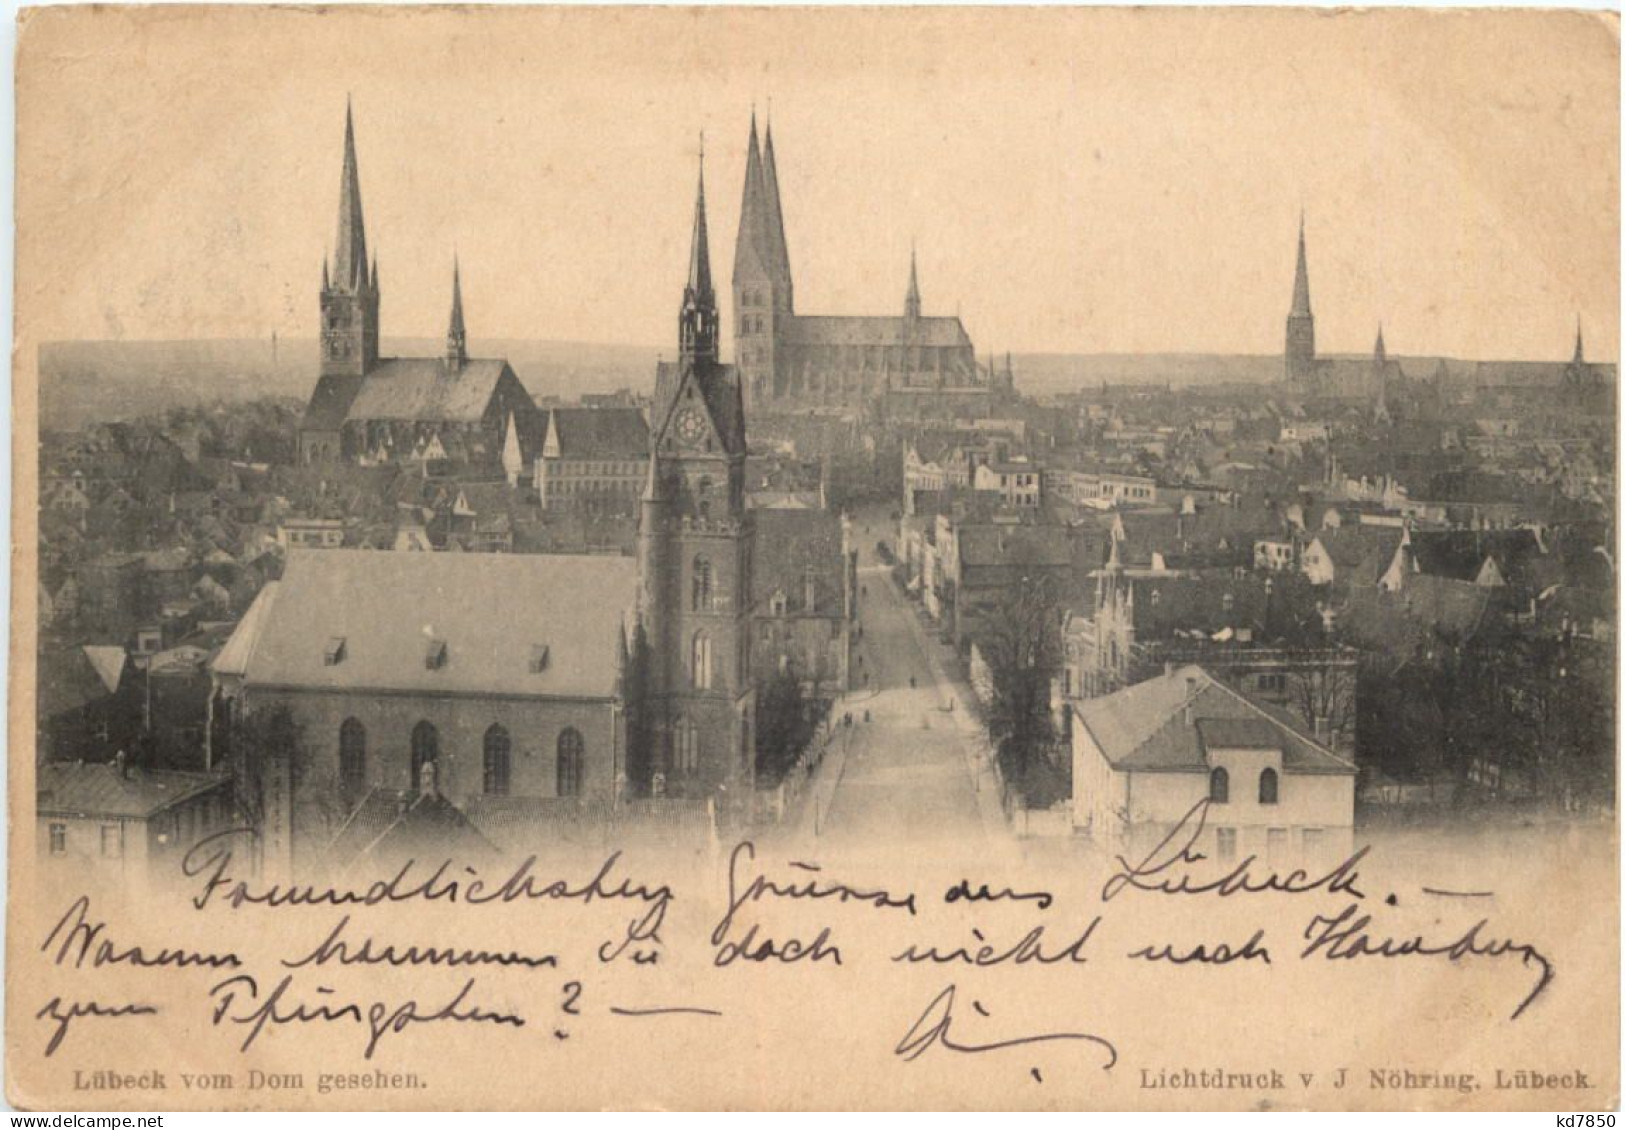 Freundlichsten Grüsse aus Lübeck. —
Warum kommen Sie doch nicht nach Hamburg
zum Pfingsten? —
Lübeck vom Dom gesehen.
Lichtdruck v J Nöhring, Lübeck.
delcampe.net
kd7850